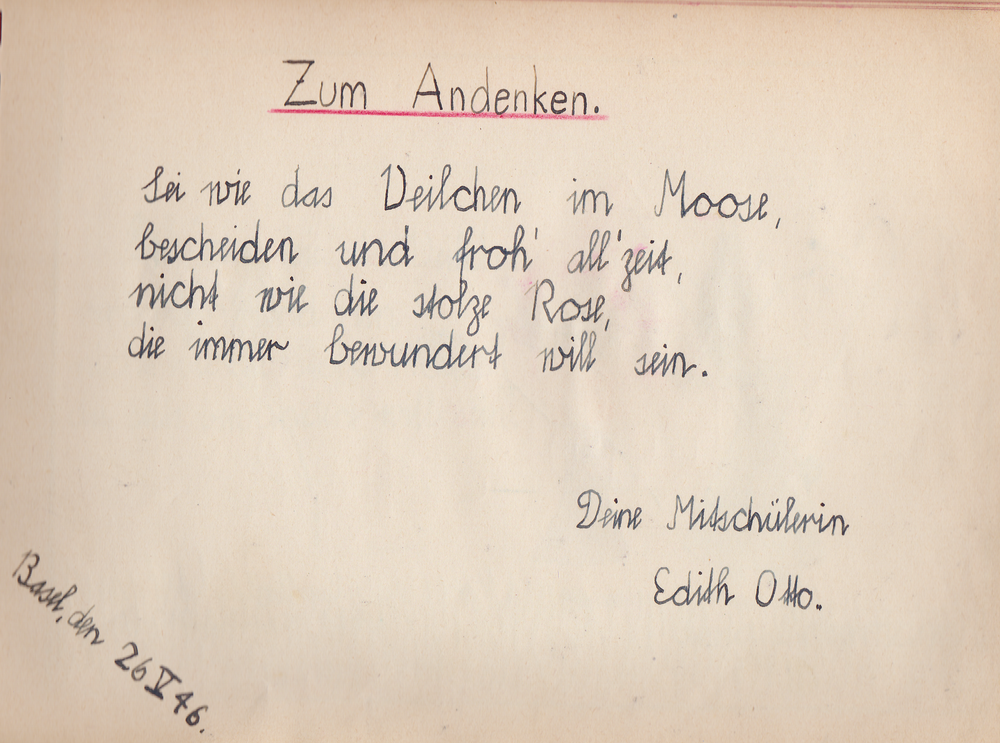 Zum Andenken.
Sei wie das Veilchen im Moose,
bescheiden und froh' all'zeit,
nicht wie die stolze Rose,
die immer bewundert will sein.
Deine Mitschülerin
Edith Otto.
Basel, den 26 V 46.